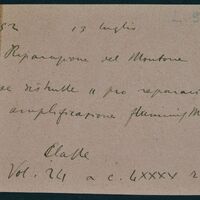 52 13 luglio
Riparazione del Montone
se distrutte e pro reparaci
amplificazione flumin M
Classe
Vol. 24 a c. 4XXXX 2